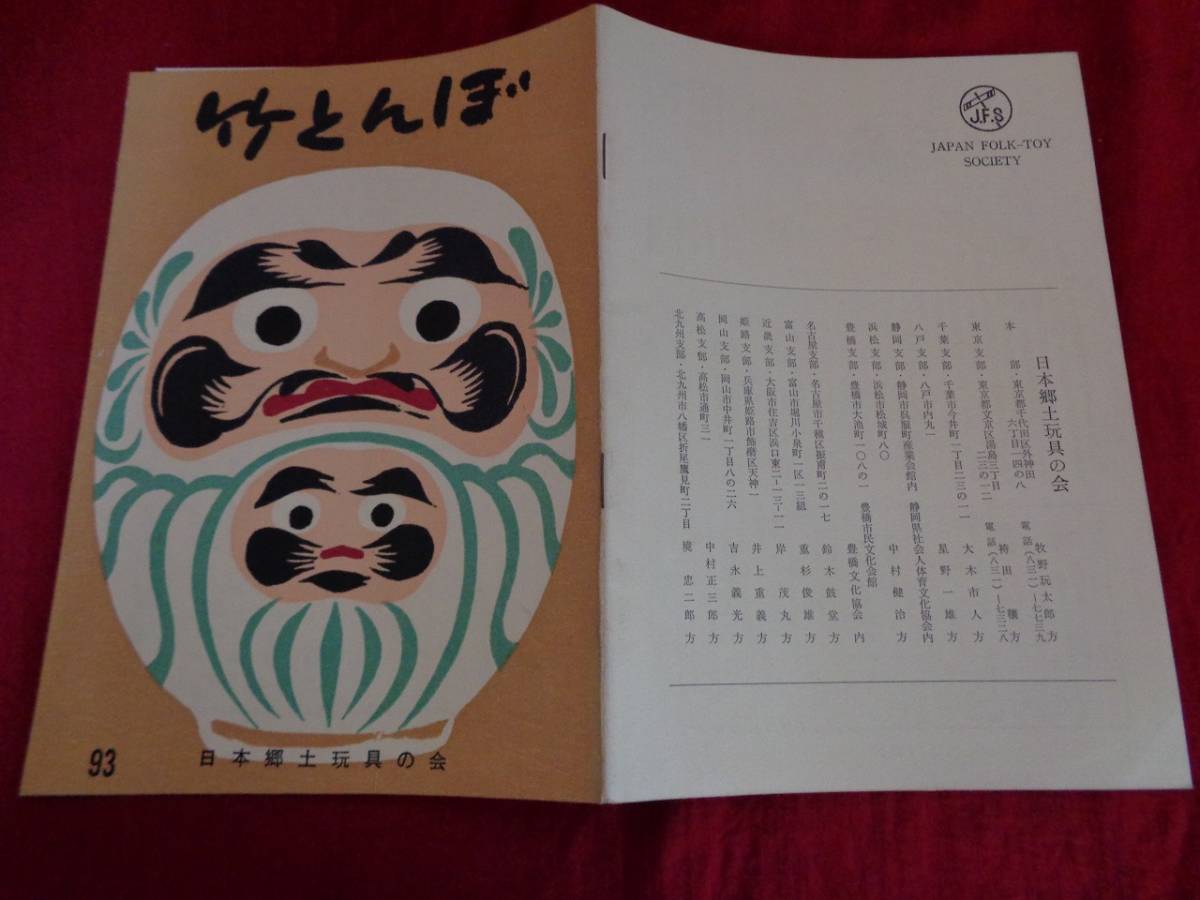 竹とんぼ
93
日本郷土玩具の会
J.F.S
JAPAN FOLK-TOY
SOCIETY
日本郷土玩具の会
本部・東京都千代田区外神田六丁目一四の八 牧野玩太郎方
電話(八三一)一七七三九
東京支部・東京都文京区湯島三丁目二三の一二 袴田穰方
電話(八三一)一七三二八
千葉支部・千葉市今井町一丁目二三の一一 大木市人方
八戸支部・八戸市内丸一 星野一雄方
静岡支部・静岡市呉服町産業会館内 静岡県社会人体育文化協会内
浜松支部・浜松市松城町八〇 中村健治方
豊橋支部・豊橋市大池町一〇八の一 豊橋市民文化会館 豊橋文化協会内
名古屋支部・名古屋市千種区振甫町二の一七 鈴木鼓堂方
富山支部・富山市堀川小泉町一区一三組 重杉俊雄方
近畿支部・大阪市住吉区浜口東二-一三-一一 岸茂丸方
姫路支部・兵庫県姫路市飾磨区天神一 井上重義方
岡山支部・岡山市中井町一丁目八の二六 吉永義光方
高松支部・高松市通町三一 中村正三郎方
北九州支部・北九州市八幡区折尾鷹見町二丁目 忠二郎方